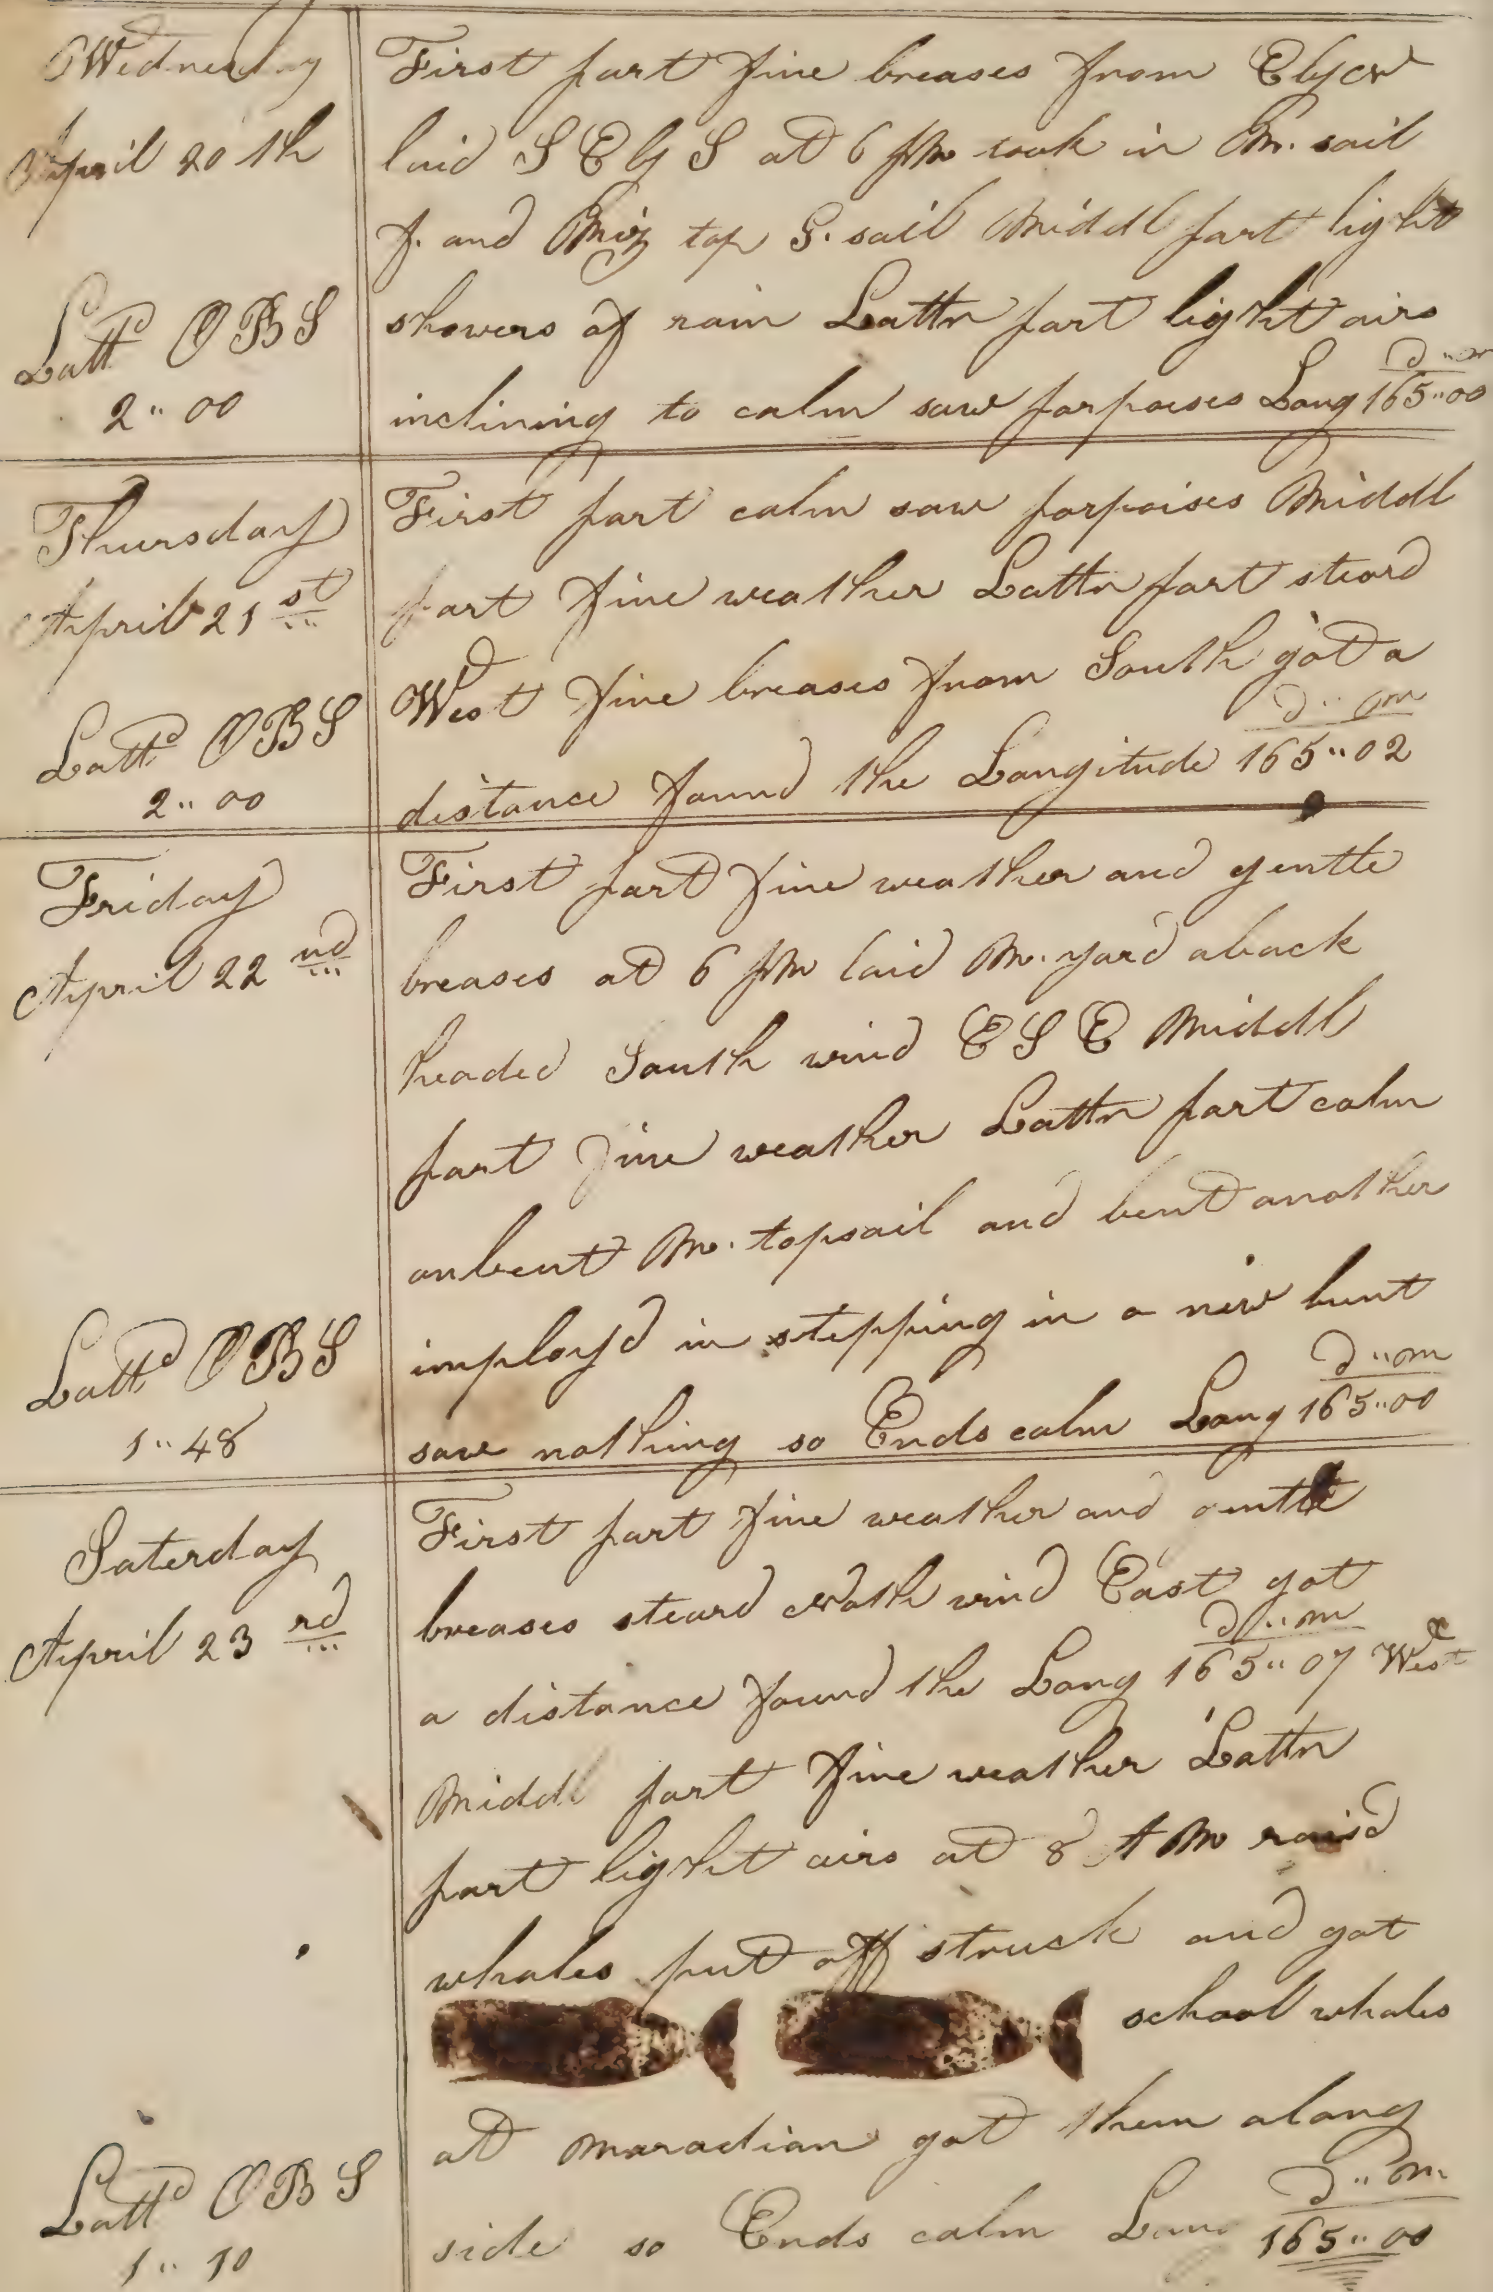 Wednesday
April 20th
Lattd OBS
2"00
First part fine breases from EbyN
laid S E by S at 6 PM took in M. sail
f. and Miz top G. sail Middl part light
showers of rain Lattr part light airs
d"m
inclining to calm saw porpoises Long 165"00
Thursday
April 21st
Lattd OBS
2"00
First part calm saw porpoises Middl
part fine weather Lattr part steard
West fine breases from South got a
d"m
distance found the Longitude 165"02
Friday
April 22nd
Lattd OBS
1"48
First part fine weather and gentle
breases at 6 PM laid M. yard aback
headed South wind E S E Middl
part fine weather Lattr part calm
onbent M. topsail and bent another
imployd in stepping in a new bunt
d"m
saw nothing so Ends calm Long 165"00
Saterday
April 23rd
Lattd OBS
1"10
First part fine weather and gentle
breases steard North wind East got
d"m
a distance found the Long 165"07 West
Middl part fine weather Lattr
part light airs at 8 AM raisd
whales put off struck and got
school whales
at maradian got them along
d"m
side so Ends calm Long 165"00